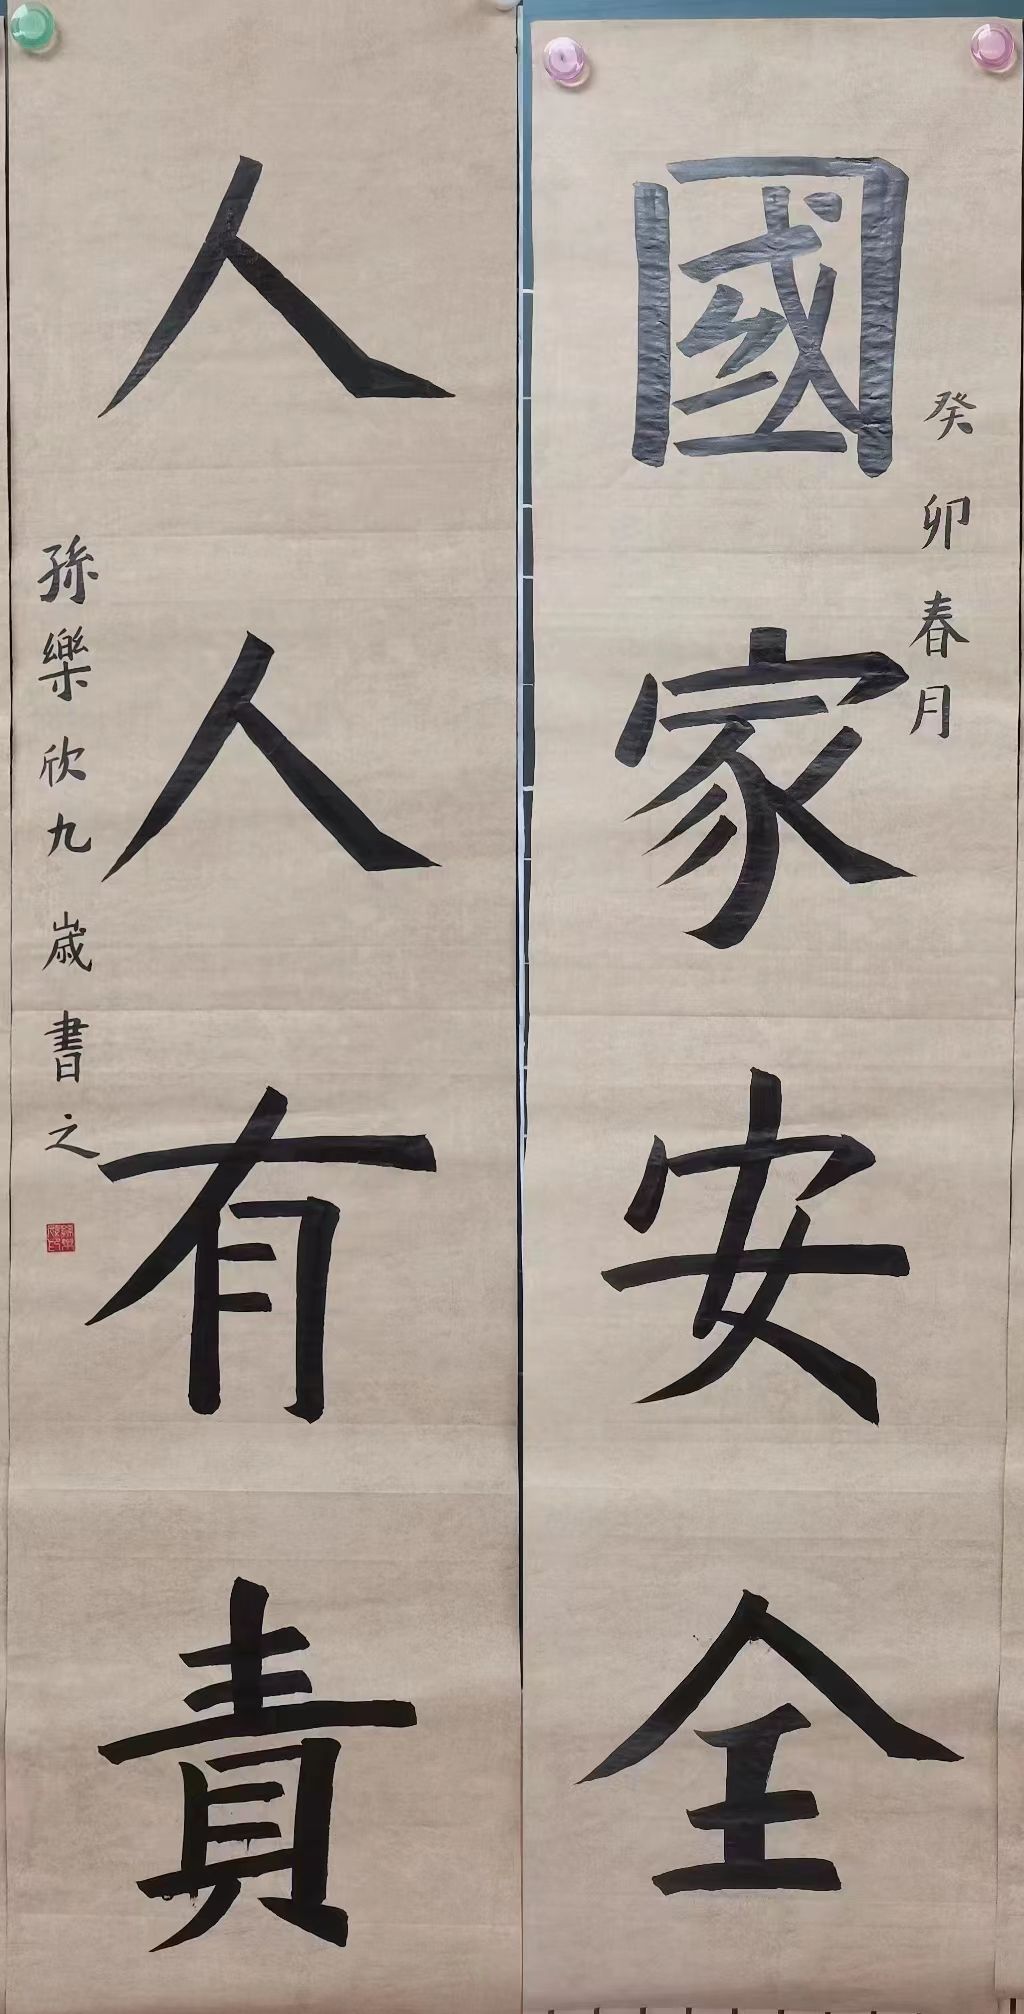 癸卯春月
國家安全
人人有責
孫樂欣九歲書之